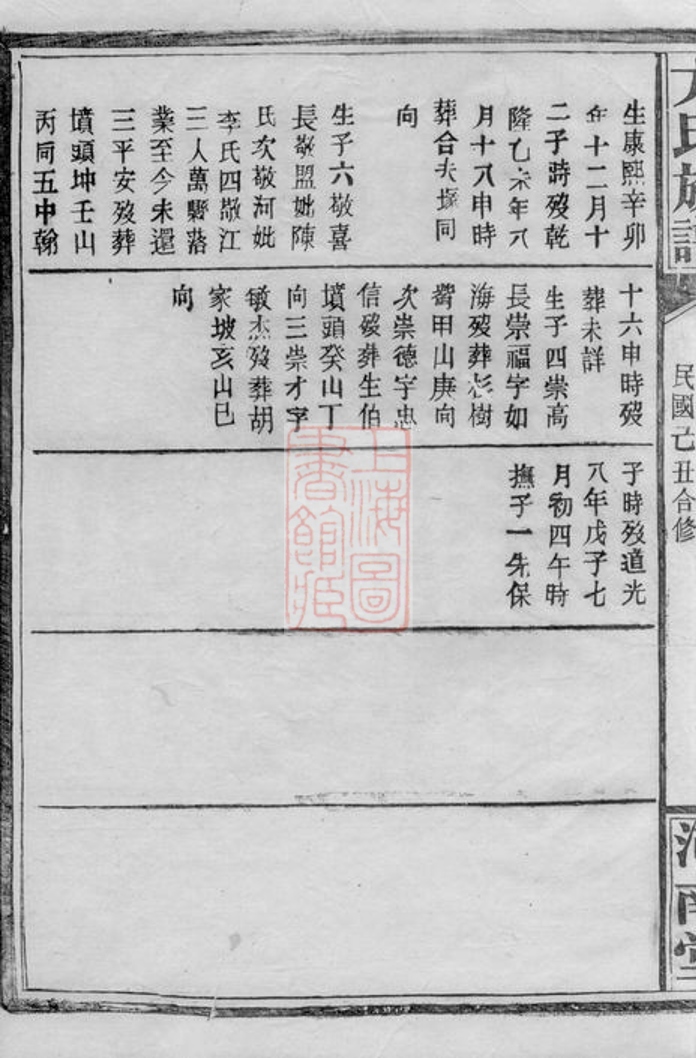 氏族譜
民國己丑合修
河南堂
生康熙辛卯
年十二月十
二子時歿乾
隆乙未年八
月十八申時
葬合夫塚同
向
生子六敬喜
長敬盟妣陳
氏次敬河妣
李氏四敬江
三人萬縣落
業至今未還
三平安歿葬
墳頭坤壬山
丙向五中翰
十六申時歿
葬未詳
生子四崇高
長崇福字如
海歿葬杉樹
甲山庚向
次崇德字忠
信歿葬生伯
墳頭癸山丁
向三崇才字
敏杰歿葬胡
家坡亥山巳
向
子時歿道光
八年戊子七
月初四午時
撫子一先保
上海圖
書館藏